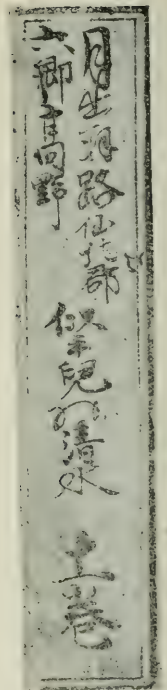 月出羽路仙北郡
六郷高野
似手兒乃清水
巻